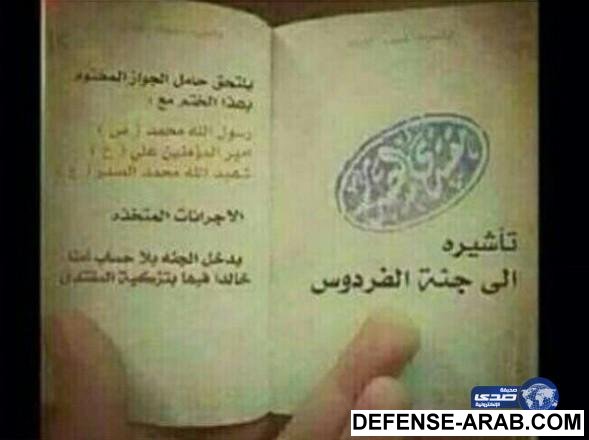 تأشيره
الى جنة الفردوس
يلتحق حامل الجواز المختوم
بهذا الختم مع :
رسول الله محمد ( ص )
امير المؤمنين علي ( ع )
شهيد الله محمد الصدر ( ع )
الاجرائات المتخذه
يدخل الجنه بلا حساب امنا
خالدا فيها بتزكية المقتدى
صحيفة
صدى
الإلكترونية
DEFENSE-ARAB.COM